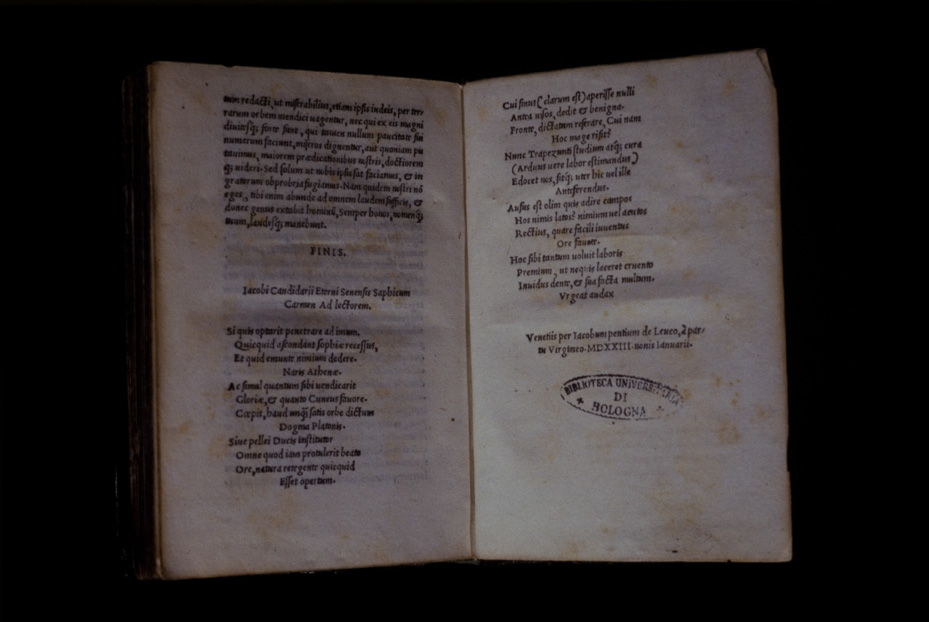 tum redacti, ut miserabilius, etiam ipsis indeis, per ter
rarum orbem mendici uagentur, nec qui ex eis magni
diuitesq; forte sint, qui tamen nullum paucitate sui
numerum faciunt, miseros dignentur, aut quoniam pu
tauimus, maiorem prædicationibus nostris, doctiorem
q; uideri. Sed solum ut nobis ipsis satfaciamus, & in
gratorum obprobria fugiamus. Nam quidem nostri nõ
eges, tibi enim abunde ad omnem laudem sufficis, &
donec genus extabit hominũ, Semper honos, nomenq;
tuum, laudesq; manebunt.
FINIS.
Iacobi Candidarii Eterni Senensis Saphicum
Carmen Ad lectorem.
Si quis optarit penetrare ad imum,
Quicquid ascondant sophiæ recessus,
Et quid emunte nimium dedere.
Naris Athenæ.
Ac simul quantum sibi uendicarit
Gloriæ, & quanto Cuneus fauore.
Cœpit, haud unq; satis orbe dictum
Dogma Platonis.
Siue pellei Ducis institutor
Omne quod iam protulerit beato
Ore, natura retegente quicquid
Esset opertum.
Cui sinus (clarum est) aperisse nulli
Antea uisos, dedit & benigna.
Fronte, dictatum reserare, Cui nam
Hoc mage risit?
Nunc Trapezunti studium atq; cura
(Arduus uere labor estimandus)
Edocet nos, sitq; uter hic uel ille
Anteferendus.
Ausus est olim quis adire campos
Hos nimis latos? nimium uel arctos
Rectius, quare facili iuuentus
Ore fauete.
Hoc sibi tantum uoluit laboris
Premium, ut nequis laceret cruento
Inuidus dente, & sua facta multum.
Vrgeat audax
Venetiis per Iacobum pentium de Leuco, A par-
tu Virgineo. MDXXIII. nonis Ianuarii.
BIBLIOTECA UNIVERSITARIA
DI
BOLOGNA